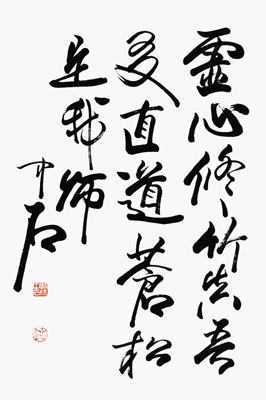 靈心修竹真吾
友直道蒼松
是我師
中石